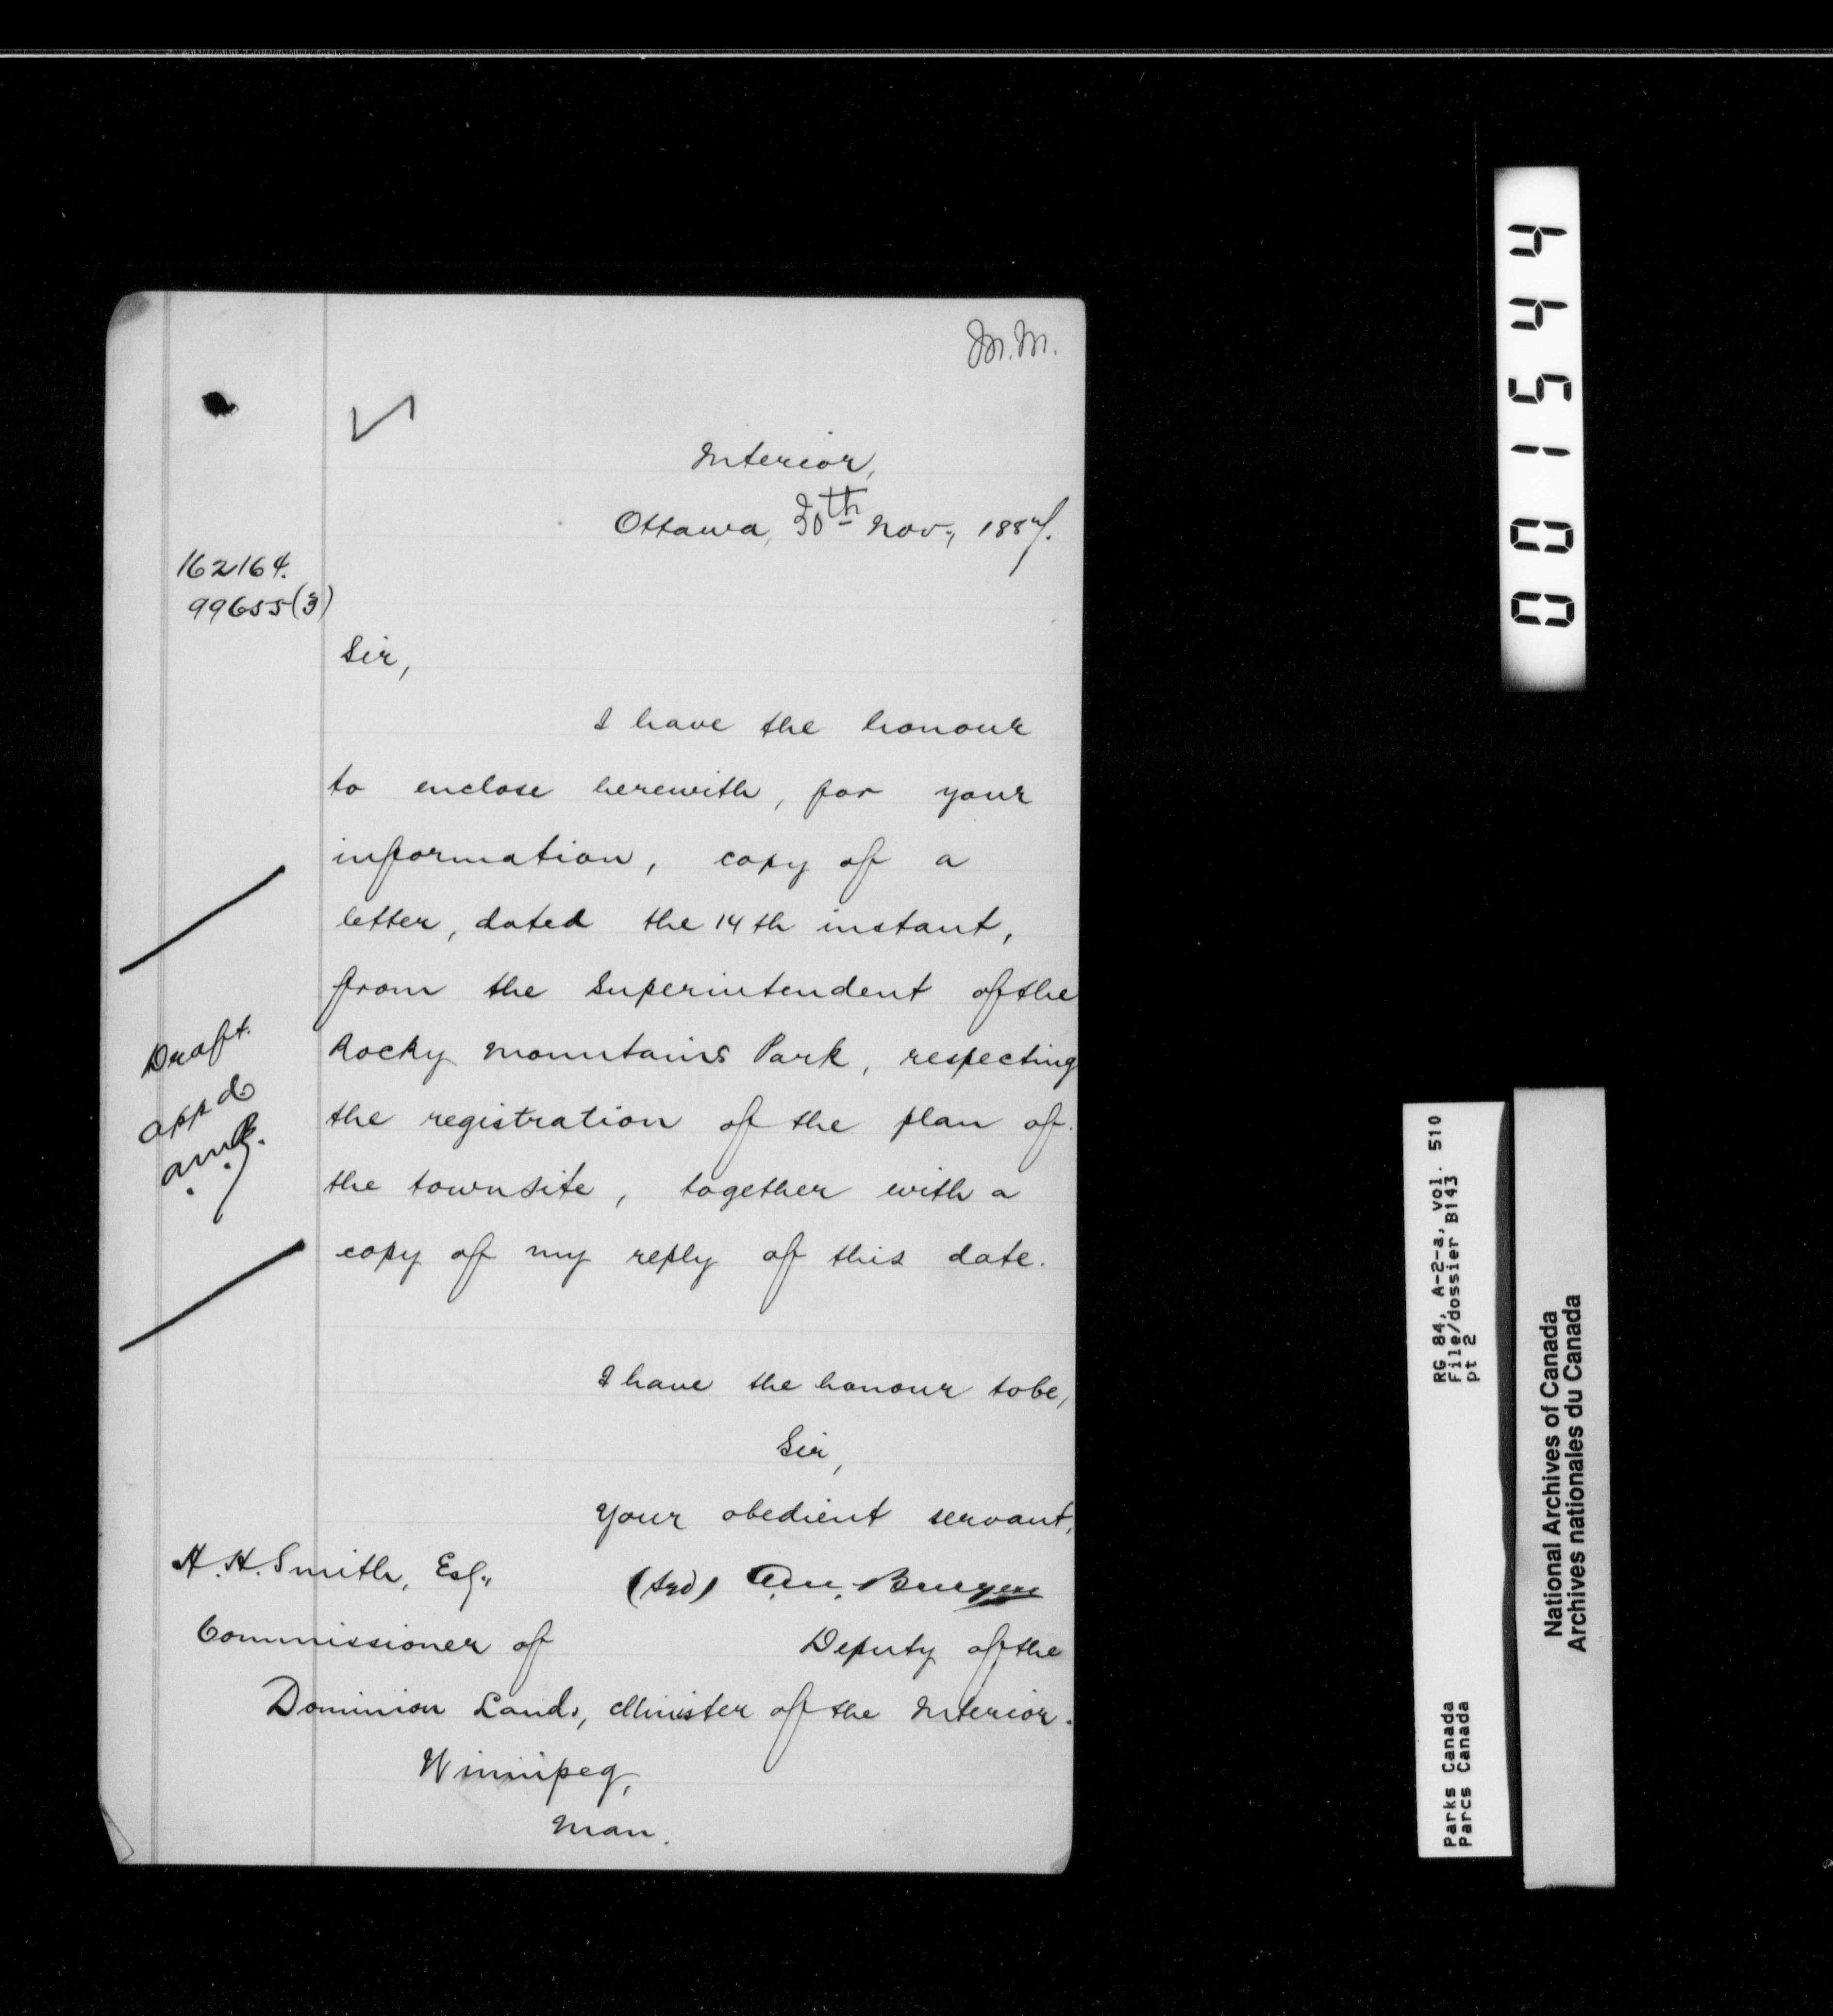 M.M.
Interior,
Ottawa, 30th Nov., 1887.
162164.
99655(3)
Sir,
I have the honour
to enclose herewith, for your
information, copy of a
letter, dated the 14th instant,
from the Superintendent of the
Rocky Mountains Park, respecting
the registration of the plan of
the townsite, together with a
copy of my reply of this date.
Draft.
appd.
AMB.
I have the honour to be,
Sir,
Your obedient servant,
(sgd) A.M. Burgess
Deputy of the
Minister of the Interior.
H. H. Smith, Esq.,
Commissioner of
Dominion Lands,
Winnipeg,
Man.
0001544
RG 84, A-2-a, vol. 510
File/dossier B143
pt 2
Parks Canada
Parcs Canada
National Archives of Canada
Archives nationales du Canada